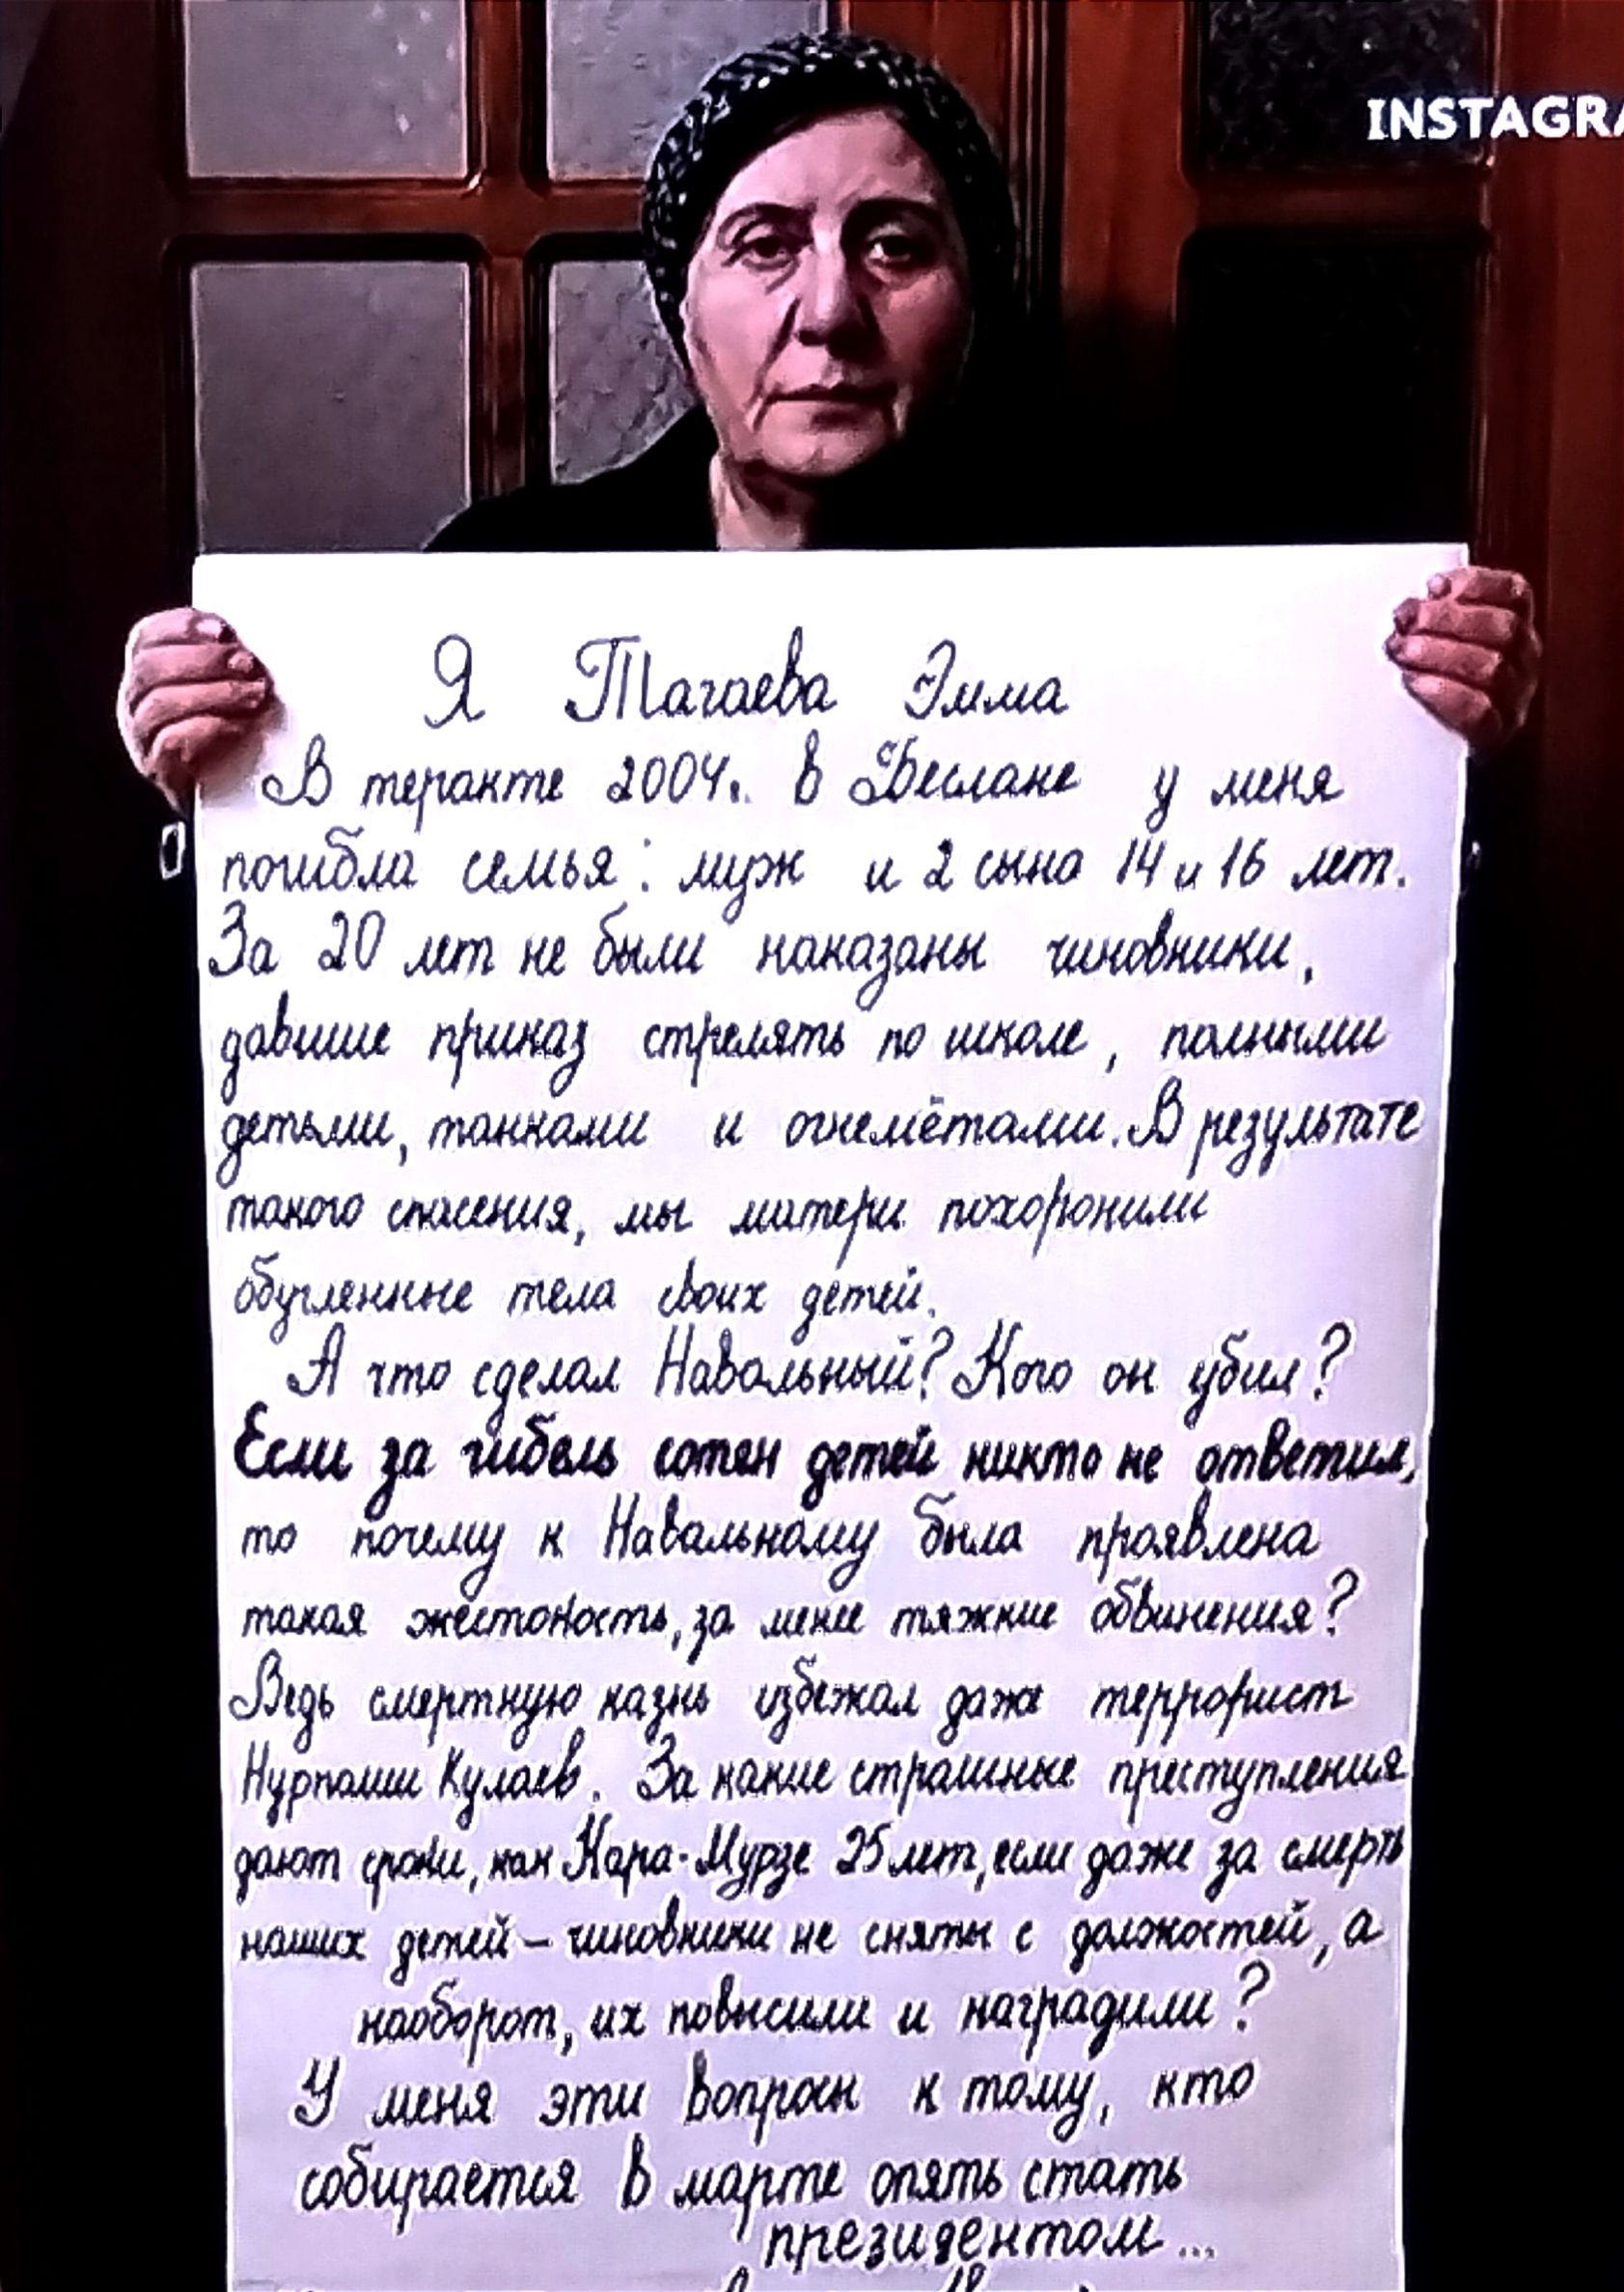 INSTAGRA
Я Тагаева Эмма
В теракте 2004г. в Беслане у меня
погибла семья: муж и 2 сына 14 и 16 лет.
За 20 лет не были наказаны чиновники,
давшие приказ стрелять по школе, полными
детьми, танками и огнемётами. В результате
такого спасения, мы матери похоронили
обугленные тела своих детей.
А что сделал Навальный? Кого он убил?
Если за гибель сотен детей никто не ответил,
то почему к Навальному была проявлена
такая жестокость, за менее тяжкие обвинения?
Ведь смертную казнь избежал даже террорист
Нурпаши Кулаев. За какие страшные преступления
дают сроки, как Кара-Мурзе 25 лет, если даже за смерть
наших детей – чиновники не сняты с должностей, а
наоборот, их повысили и наградили?
У меня эти вопросы к тому, кто
собирается в марте опять стать
президентом...